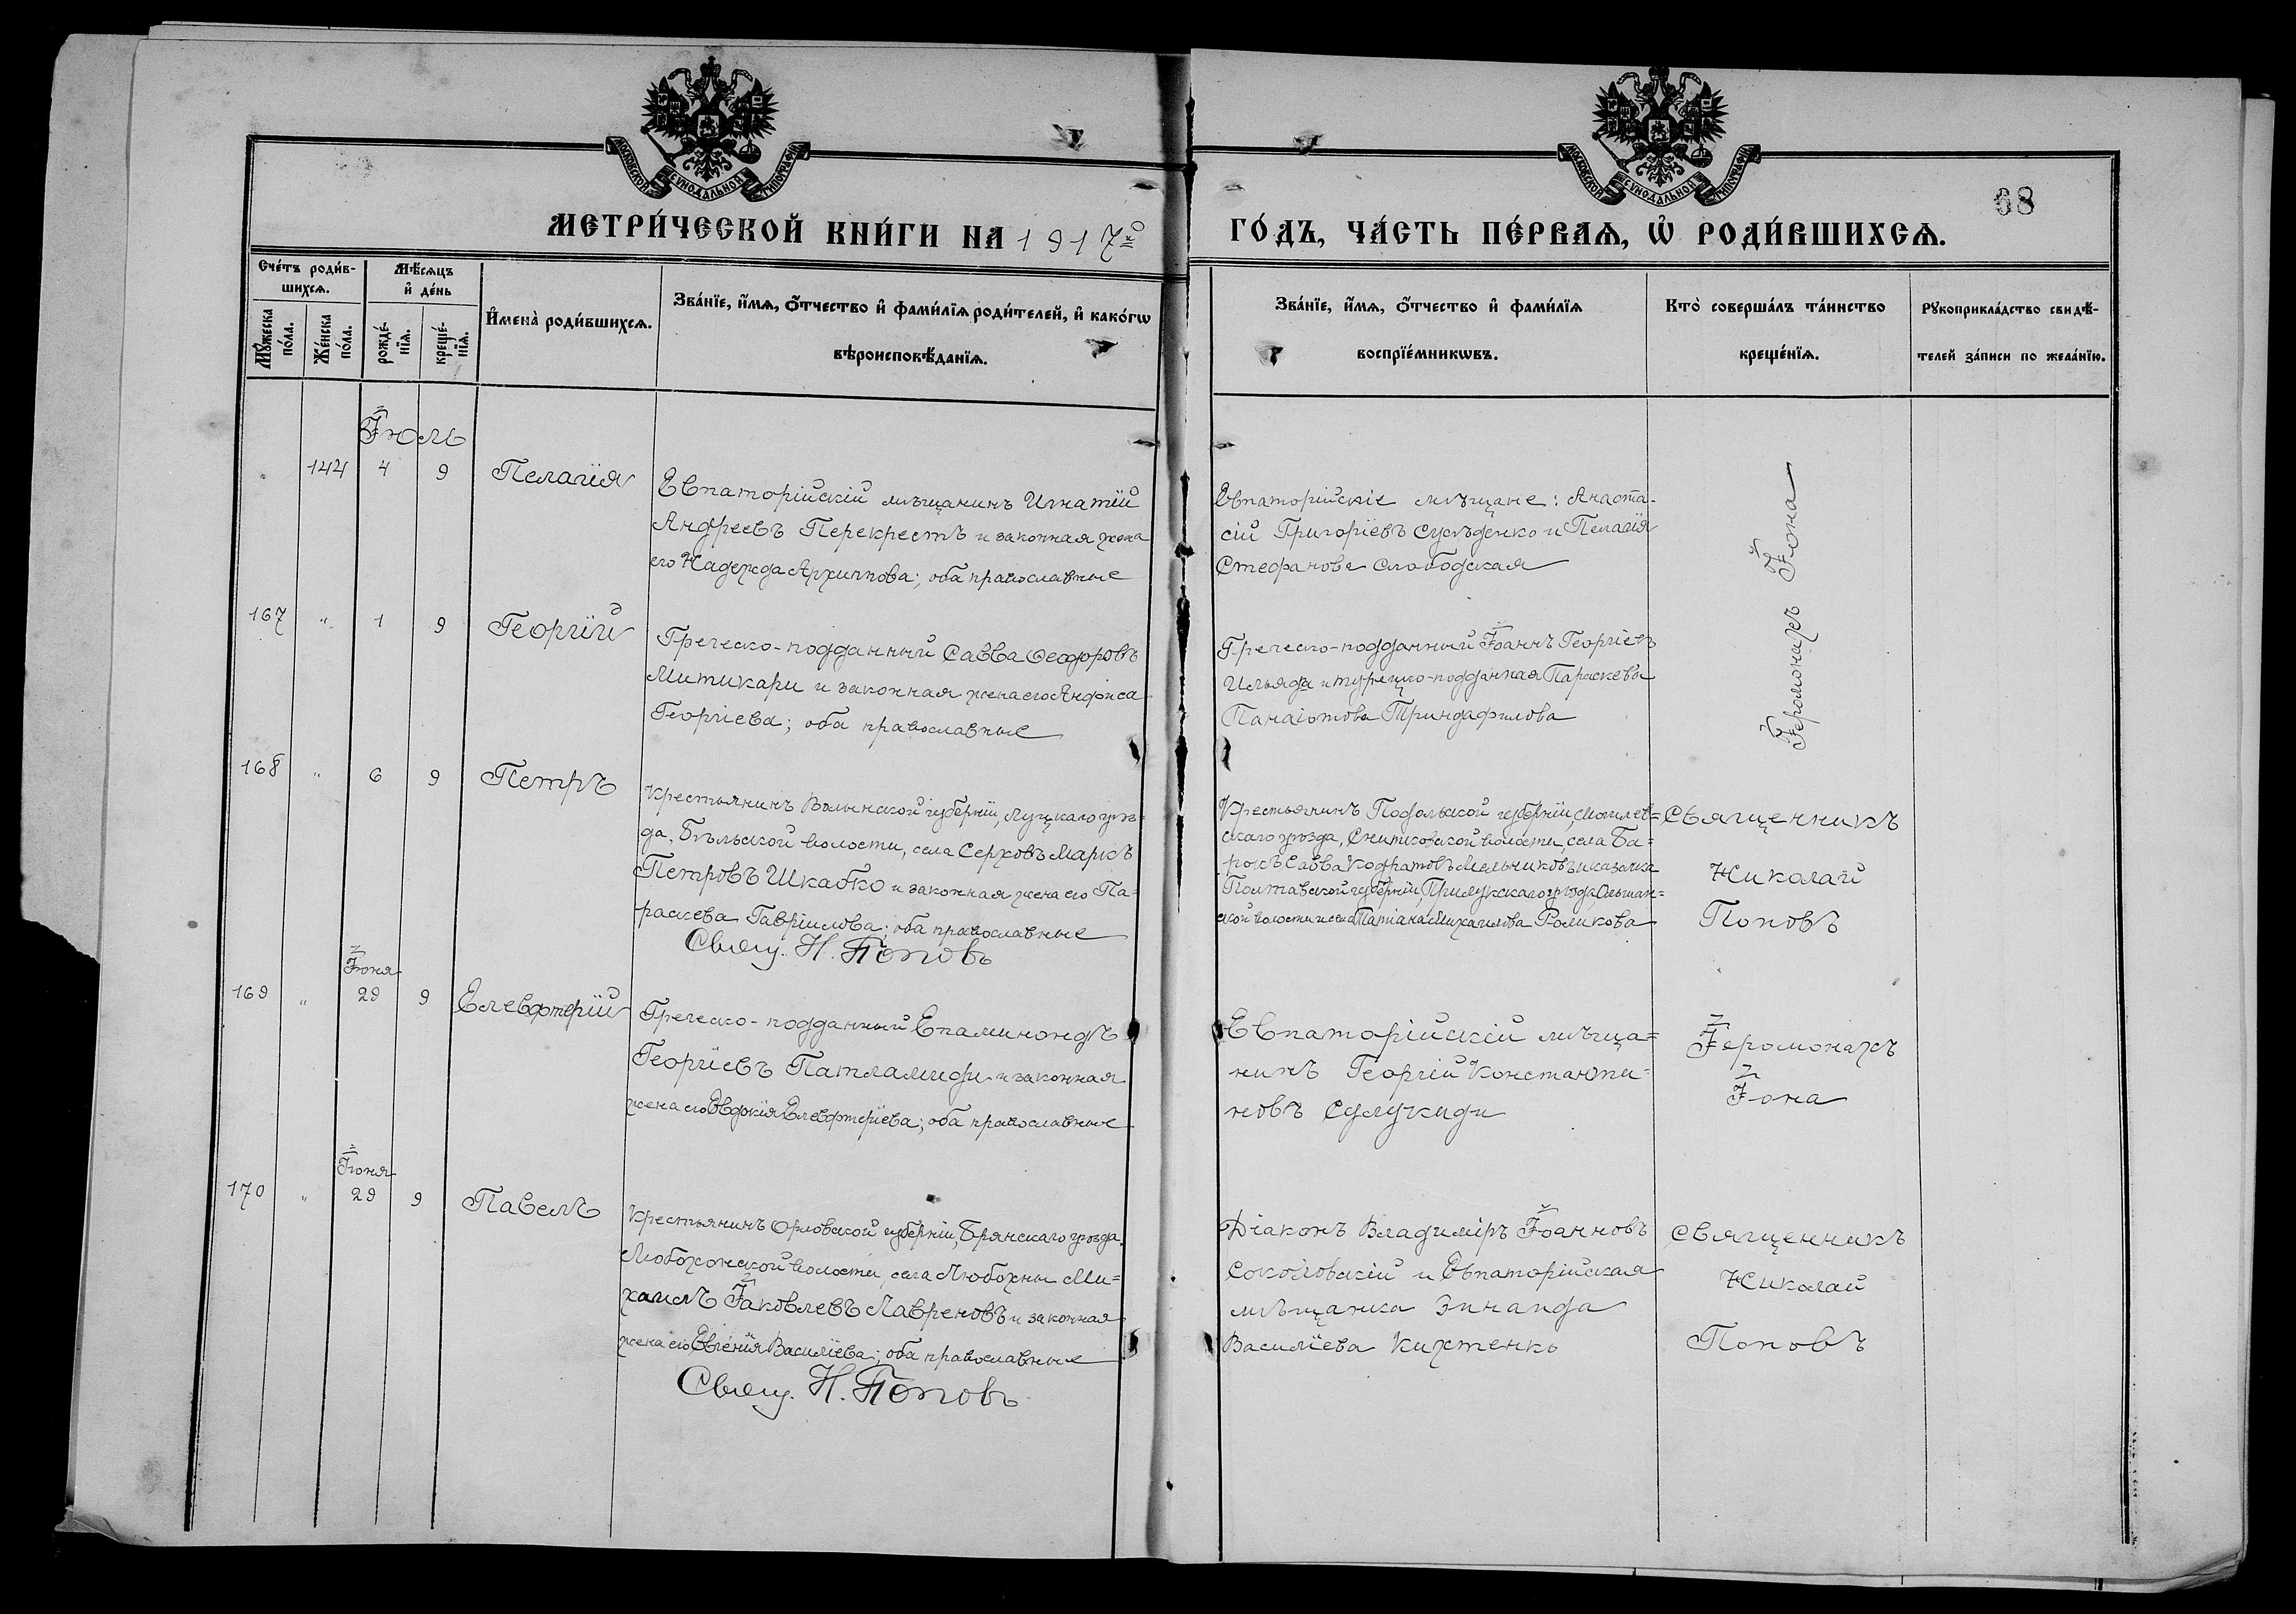 МОСКОВСКОЙ СѴНОДАЛЬНОЙ ТИПОГРАФІИ
МОСКОВСКОЙ СѴНОДАЛЬНОЙ ТИПОГРАФІИ
68
МЕТРИ́ЧЕСКОЙ КНИ́ГИ НА 1917й
ГО́ДЪ, ЧА́СТЬ ПЕ́РВАѦ, Ѡ҆ РОДИ́ВШИХСѦ.
Сче́тъ роди́в-
шихсѧ.
Мѣ́сѧцъ
и҆ де́нь
Мꙋ́жеска
по́ла.
Же́нска
по́ла.
рожде́-
нїѧ.
креще́-
нїѧ.
И҆мена̀ роди́вшихсѧ.
Зва́нїе, и҆́мѧ, ѻ҆́тчество и҆ фами́лїѧ роди́телей, и҆ како́гѡ
вѣроисповѣ́данїѧ.
Зва́нїе, и҆́мѧ, ѻ҆́тчество и҆ фами́лїѧ
воспрїе́мникѡвъ.
Кто̀ соверша́лъ та́инство
креще́нїѧ.
Рꙋкоприкла́дство свидѣ́-
телей за́писи по жела́нїю.
Іюль
144 4 9 Пелагія
Евпаторійскій мѣщанинъ Игнатій
Андреевъ Перекрестъ и законная жена
его Надежда Архиппова; оба православные
Евпаторійскіе мѣщане: Анаста-
сій Григоріевъ Сусѣденко и Пелагія
Стефанова Слободская
Іеромонахъ Іона
167 " 1 9 Георгій
Греческо-подданный Савва Ѳеодоровъ
Митикари и законная жена его Анфиса
Георгіева; оба православные
Греческо-подданный Іоаннъ Георгіевъ
Ильяди и турецко-подданная Параскева
Панаіотова Триндафилова
168 " 6 9 Петръ
Крестьянинъ Волынской губерніи, Луцкаго уѣз-
да, Бѣльской волости, села Серховъ Маркъ
Петровъ Шкабко и законная жена его Па-
раскева Гавріилова; оба православные
Свящ. Н. Поповъ
Крестьянинъ Подольской губерніи, Могилев-
скаго уѣзда, Снитковской волости, села Ба-
рокъ Савва Кодратовъ Мельниковъ и казачка
Полтавской губерніи, Прилукскаго уѣзда, Ольшан-
ской волости и села Татіана Михаилова Роликова
Священникъ
Николай
Поповъ
Іюня
169 " 29 9 Елевфтерій
Греческо-подданный Епаминондъ
Георгіевъ Патламиди и законная
жена его Евдокія Елевфтеріева; оба православные
Евпаторійскій мѣща-
нинъ Георгій Константи-
новъ Сулукиди
Іеромонахъ
Іона
Іюня
170 " 29 9 Павелъ
Крестьянинъ Орловской губерніи, Брянскаго уѣзда,
Любохонской волости, села Любохны Ми-
хаилъ Іаковлевъ Лавреновъ и законная
жена его Евгенія Василіева; оба православные
Свящ. Н. Поповъ
Діаконъ Владиміръ Іоанновъ
Соколовскій и Евпаторійская
мѣщанка Зинаида
Василіева Кихтенко
Священникъ
Николай
Поповъ